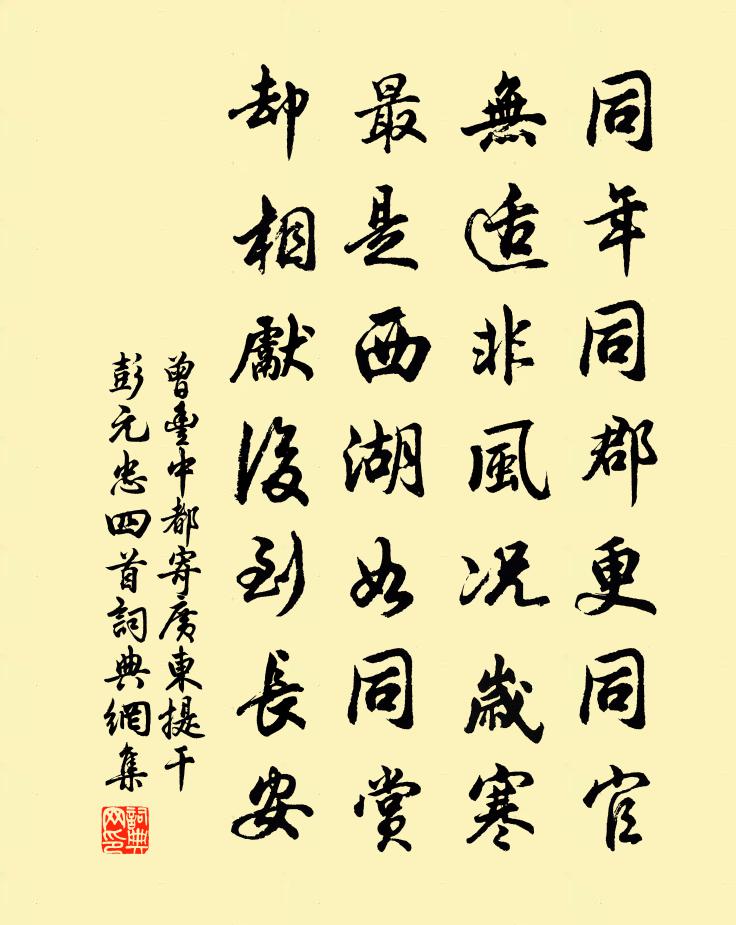 同年同郡更同官
無适非風况歲寒
最是西湖如同賞
却相獻後到長安
曾豐中都寄廣東提干
彭元忠四首詞典網集
詞典
网印